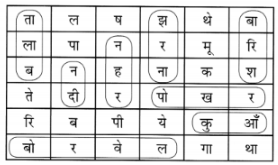 ता ल ष झ थे बा
ला पा न र मू रि
ब न ह ना क श
ते दी र पो ख र
रि ब पी ये कु आँ
बो र वे ल गा था